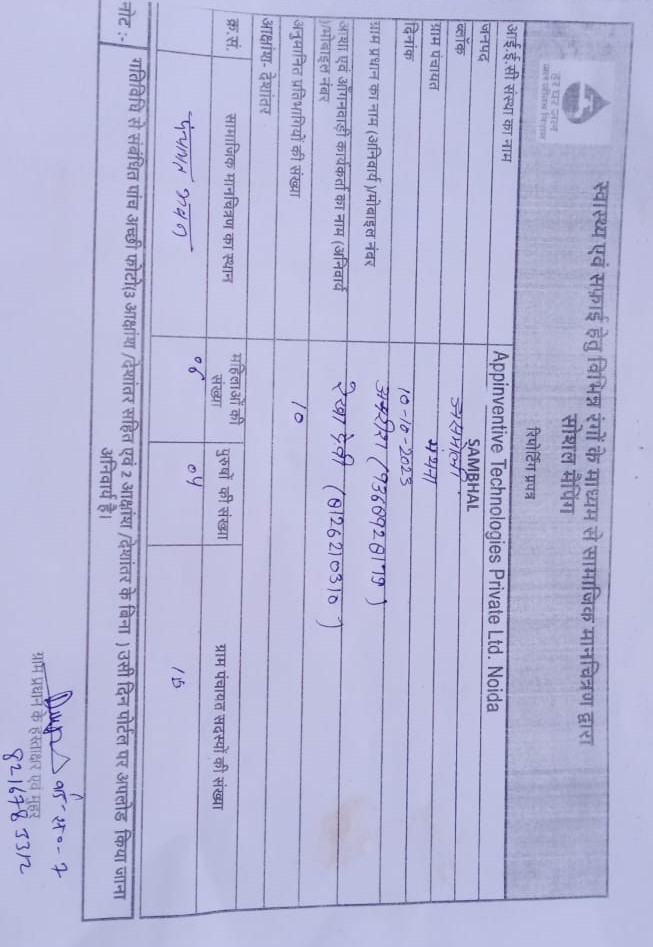 हर घर जल
जल जीवन मिशन
स्वास्थ्य एवं सफ़ाई हेतु विभिन्न रंगों के माध्यम से सामाजिक मानचित्रण द्वारा
सोशल मैपिंग
रिपोर्टिंग प्रपत्र
आई.ई.सी संस्था का नाम Appinventive Technologies Private Ltd. Noida
जनपद SAMBHAL
ब्लॉक
ग्राम पंचायत
दिनांक 10-10-2023
ग्राम प्रधान का नाम (अनिवार्य )/मोबाइल नंबर
आशा एवं आँगनवाड़ी कार्यकर्ता का नाम (अनिवार्य रेखा देवी (8126210310)
)/मोबाइल नंबर
अनुमानित प्रतिभागियों की संख्या 10
आक्षांश- देशांतर
क्र.सं. सामाजिक मानचित्रण का स्थान महिलाओं की संख्या पुरुषों की संख्या ग्राम पंचायत सदस्यों की संख्या
पंचायत भवन 06 04
नोट :- गतिविधि से संबंधित पांच अच्छी फोटो(3 आक्षांश /देशांतर सहित एवं 2 आक्षांश /देशांतर के बिना ) उसी दिन पोर्टल पर अपलोड किया जाना
अनिवार्य है।
ग्राम प्रधान के हस्ताक्षर एवं मुहर